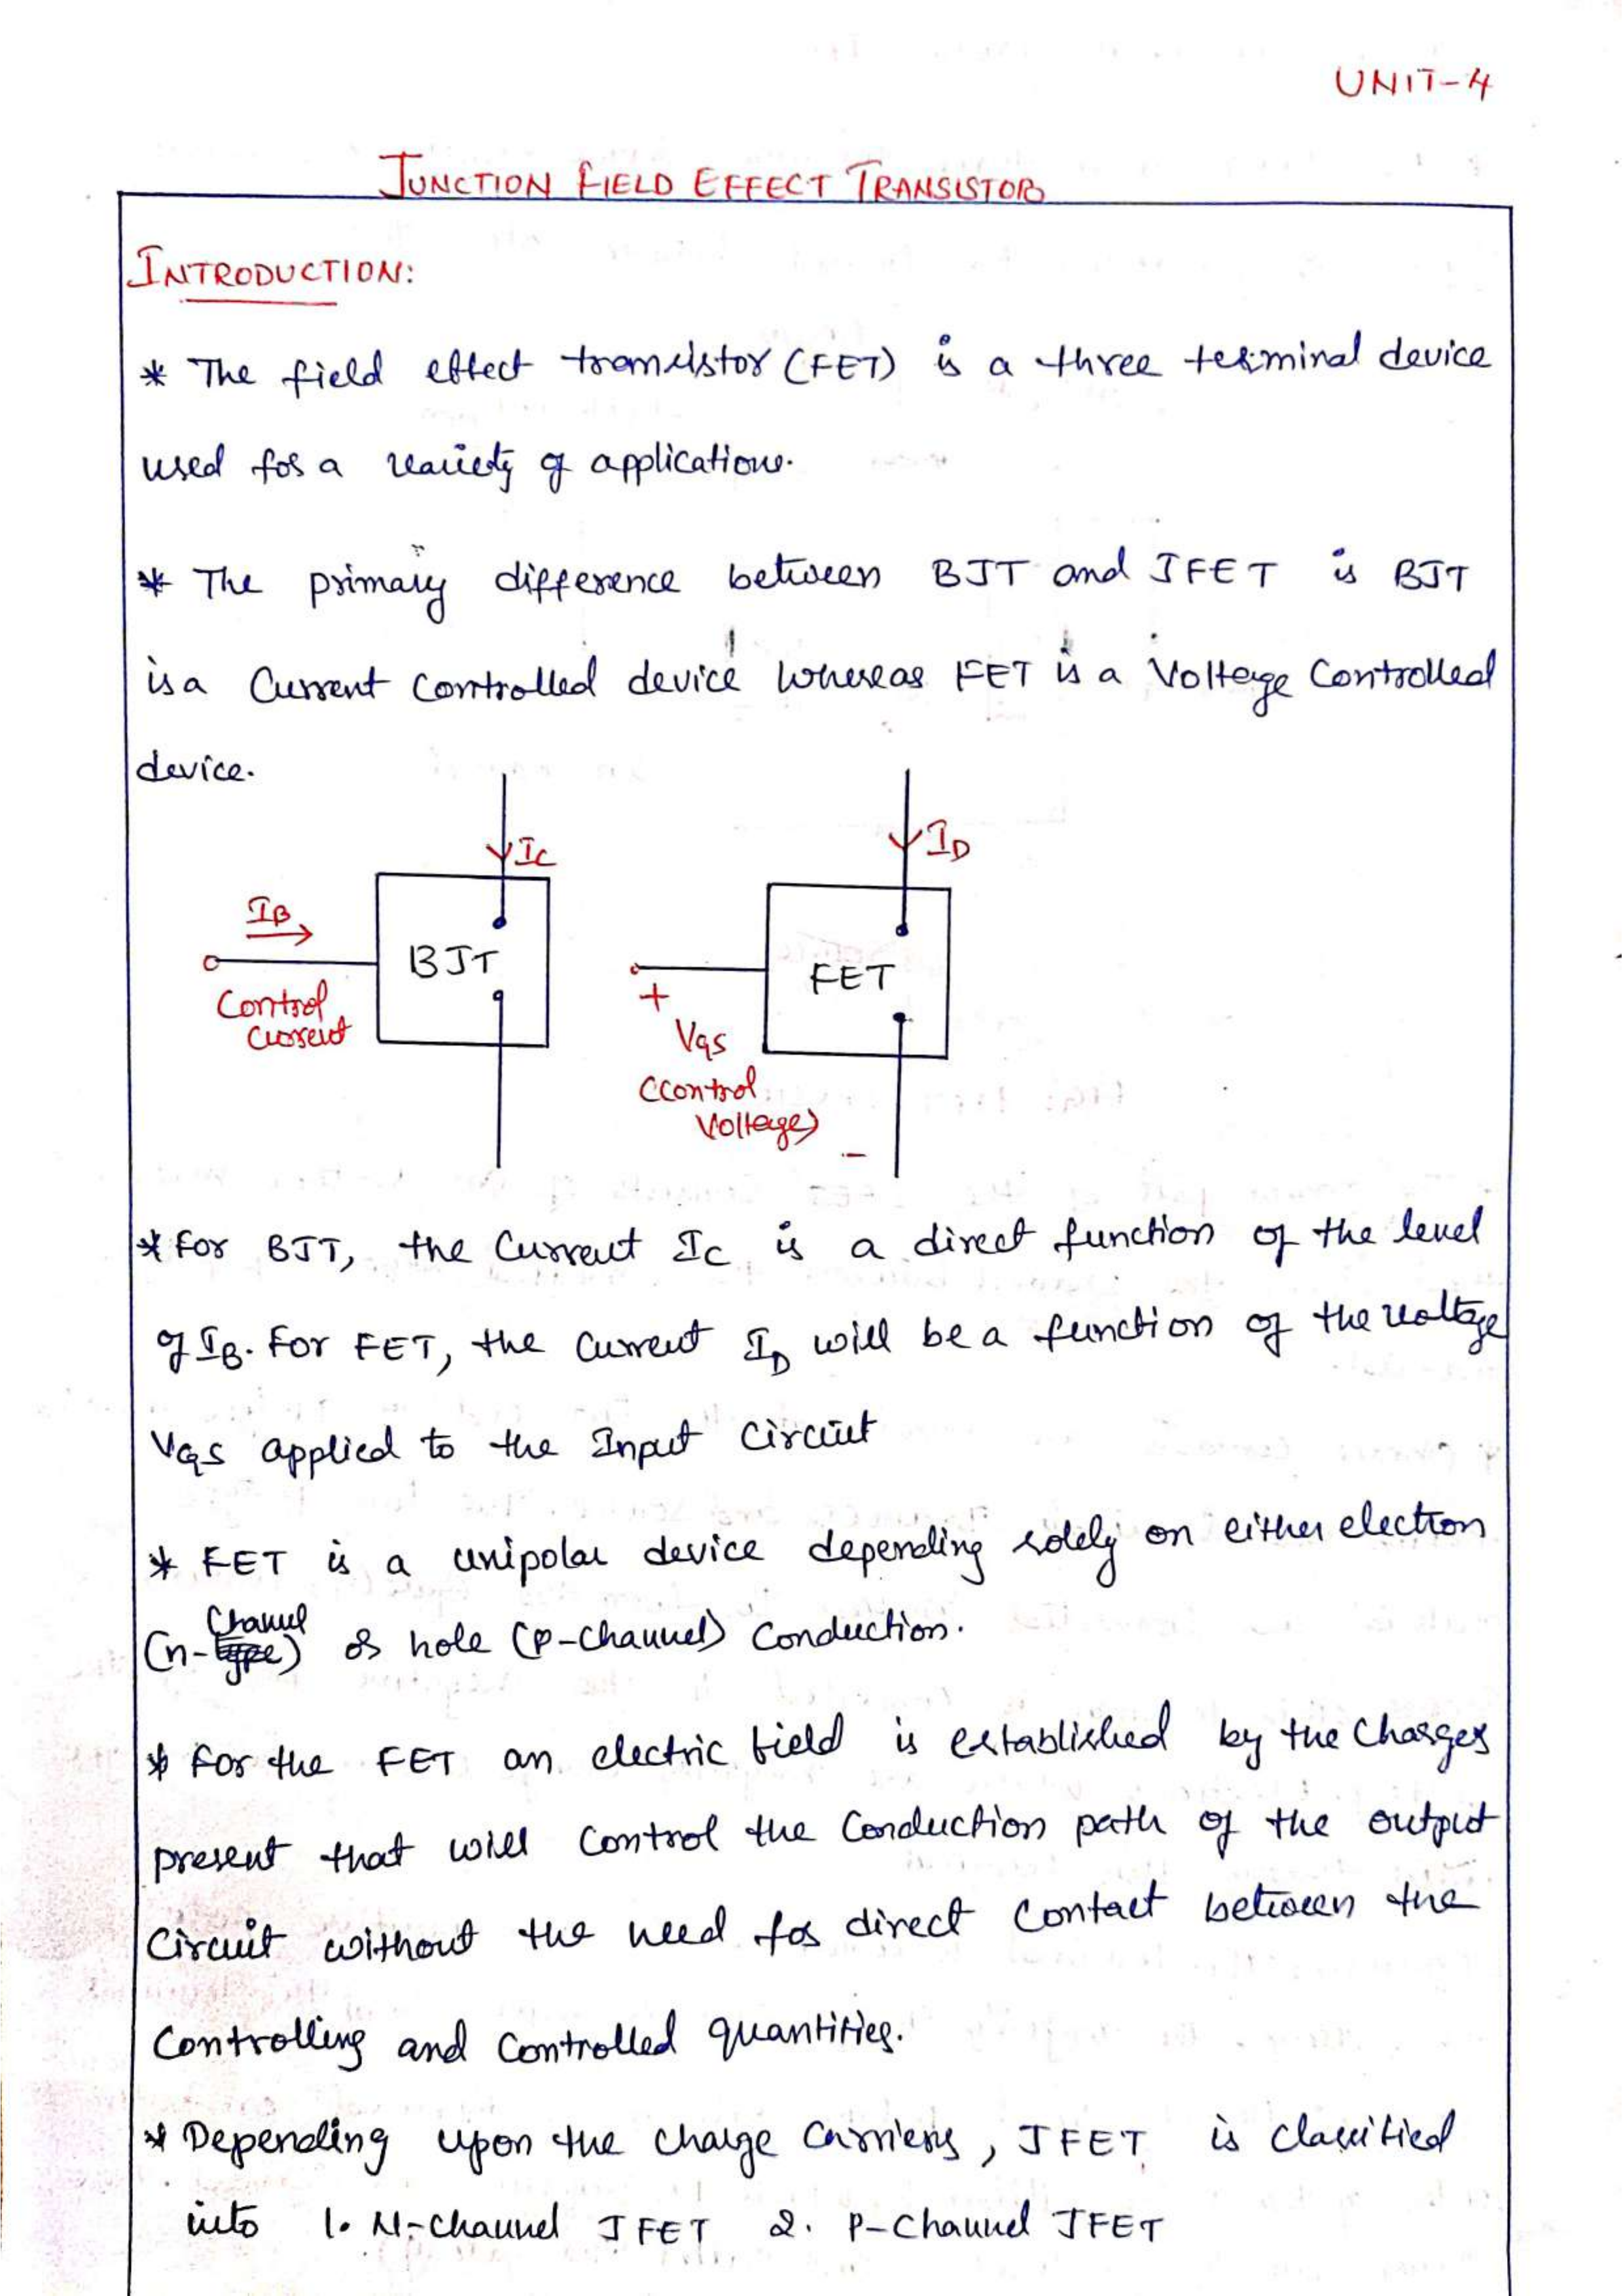 UNIT-4
JUNCTION FIELD EFFECT TRANSISTOR
INTRODUCTION:
* The field effect transistor (FET) is a three terminal device
used for a variety of applications.
* The primary difference between BJT and JFET is BJT
is a Current Controlled device whereas FET is a Voltage Controlled
device.
IC
ID
IB
BJT
FET
Control
Current
+
VGS
(Control
Voltage)
-
* For BJT, the Current IC is a direct function of the level
of IB. For FET, the Current ID will be a function of the voltage
VGS applied to the Input Circuit
* FET is a unipolar device depending solely on either electron
Channel
(n-type) or hole (p-channel) Conduction.
* For the FET an electric field is established by the Charges
present that will Control the Conduction path of the output
Circuit without the need for direct Contact between the
Controlling and Controlled quantities.
* Depending upon the charge Carriers, JFET is classified
into 1. N-Channel JFET 2. P-Channel JFET